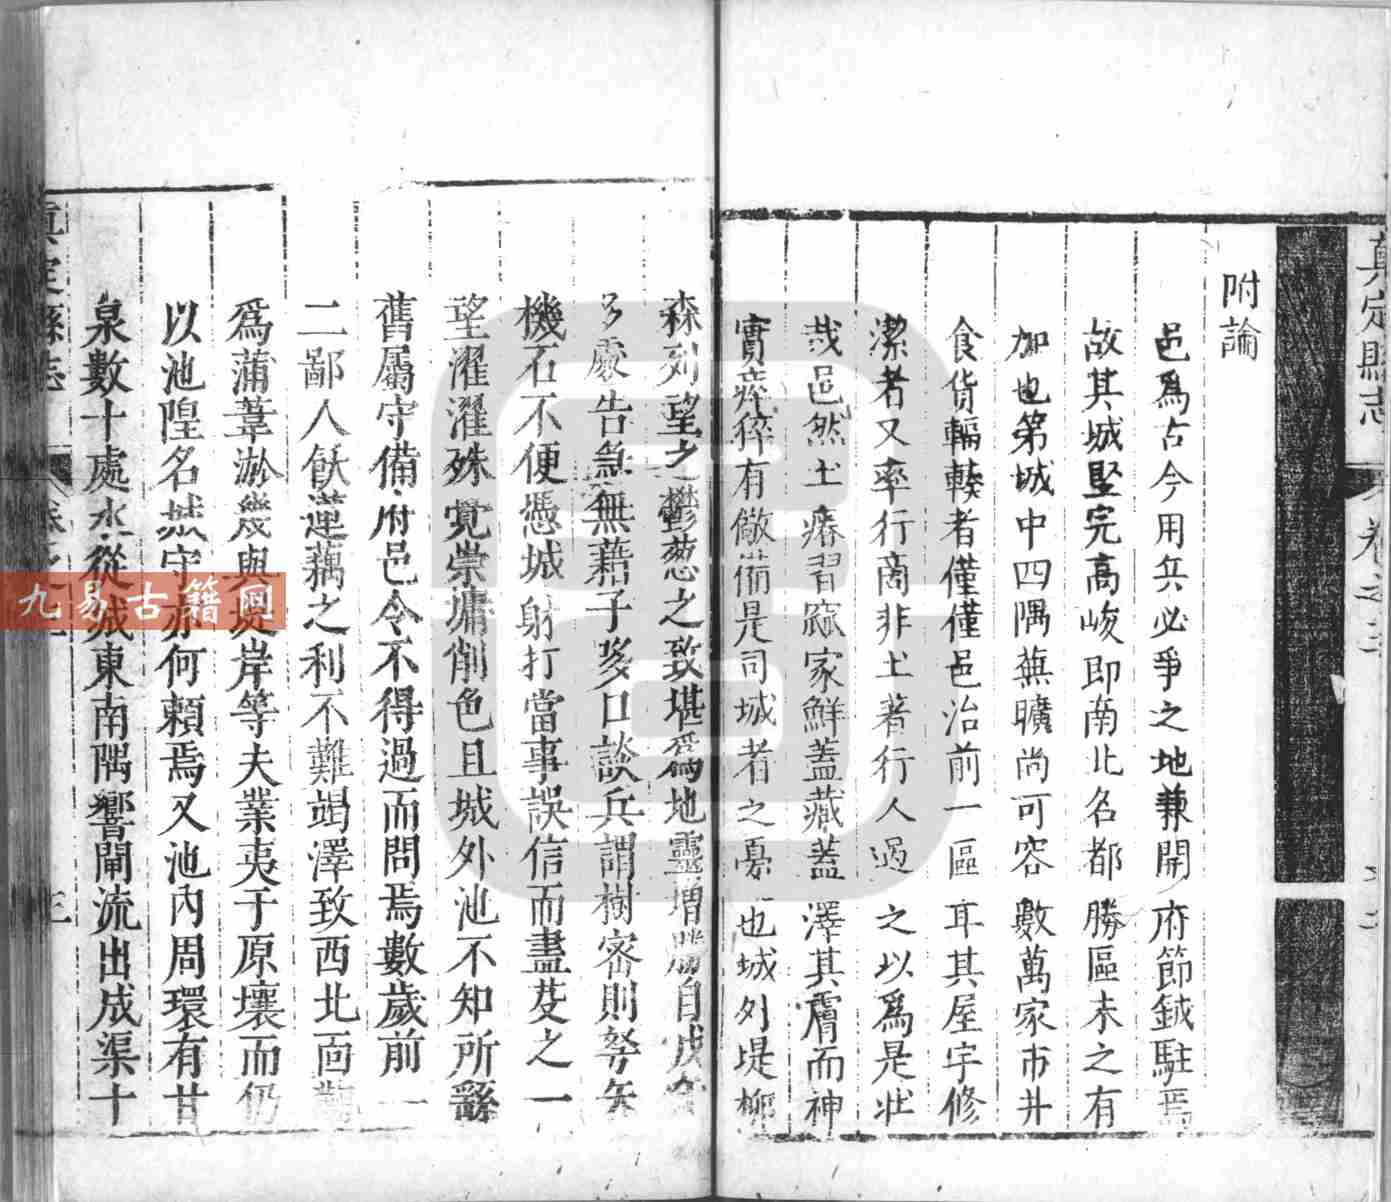 真定縣志
卷之二
附論
邑爲古今用兵必爭之地兼開府節鉞駐焉
故其城堅完高峻即南北名都勝區未之有
加也第城中四隅蕪曠尚可容數萬家市井
食貨輻輳者僅僅邑治前一區耳其屋宇修
潔者又率行商非土著行人過之以爲是壯
哉邑然土瘠習窳家鮮蓋藏蓋澤其膚而神
實瘁猝有儆備是司城者之憂也城外堤柳
森列望之鬱葱之致堪爲地靈增勝自戊
多處告急無藉子多口談兵謂樹密則弩矢
機石不便憑城射打當事誤信而盡芟之一
望濯濯殊覺崇墉削色且城外池不知所繇
舊屬守備府邑令不得過而問焉數歲前一
二鄙人飫蓮藕之利不難竭澤致西北面
爲蒲葦淤幾與堤岸等夫業夷于原壤而仍
以池隍名城守亦何賴焉又池內周環有甘
泉數十處水從城東南隅響閘流出成渠十
真定縣志
三
九易古籍网